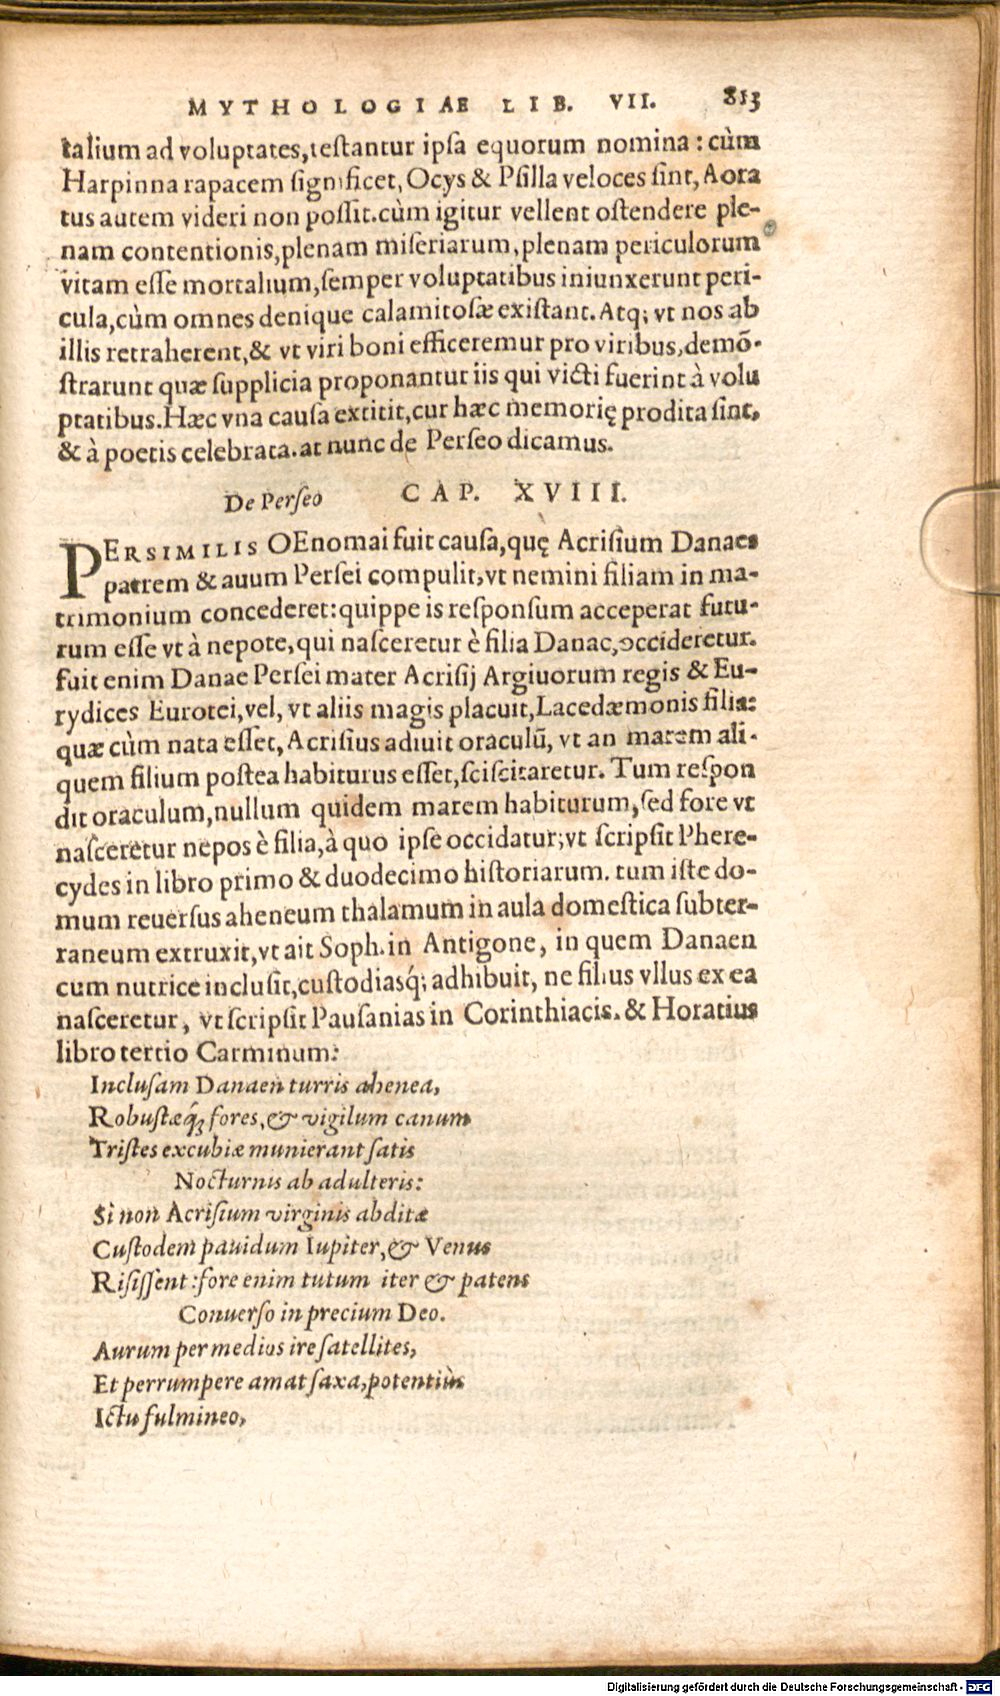 MYTHOLOGIAE LIB. VII. 813
talium ad voluptates, testantur ipsa equorum nomina: cùm
Harpinna rapacem significet, Ocys & Psilla veloces sint, Aora
tus autem videri non possit. cùm igitur vellent ostendere ple-
nam contentionis, plenam miseriarum, plenam periculorum
vitam esse mortalium, semper voluptatibus iniunxerunt peri-
cula, cùm omnes denique calamitosæ existant. Atq; vt nos ab
illis retraherent, & vt viri boni efficeremur pro viribus, demõ-
strarunt quæ supplicia proponantur iis qui victi fuerint à volu
ptatibus. Hæc vna causa extitit, cur hæc memorię prodita sint,
& à poetis celebrata. at nunc de Perseo dicamus.
De Perseo CAP. XVIII.
PERSIMILIS OEnomai fuit causa, quę Acrisium Danaes
patrem & auum Persei compulit, vt nemini filiam in ma-
trimonium concederet: quippe is responsum acceperat futu-
rum esse vt à nepote, qui nasceretur è filia Danae, occideretur.
fuit enim Danae Persei mater Acrisij Argiuorum regis & Eu-
rydices Eurotei, vel, vt aliis magis placuit, Lacedæmonis filia:
quæ cùm nata esset, Acrisius adiuit oraculũ, vt an marem ali-
quem filium postea habiturus esset, sciscitaretur. Tum respon
dit oraculum, nullum quidem marem habiturum, sed fore vt
nasceretur nepos è filia, à quo ipse occidatur; vt scripsit Phere-
cydes in libro primo & duodecimo historiarum. tum iste do-
mum reuersus aheneum thalamum in aula domestica subter-
raneum extruxit, vt ait Soph. in Antigone, in quem Danaen
cum nutrice inclusit, custodiasq́; adhibuit, ne filius vllus ex ea
nasceretur, vt scripsit Pausanias in Corinthiacis. & Horatius
libro tertio Carminum:
Inclusam Danaen turris ahenea,
Robustæq́; fores, & vigilum canum
Tristes excubiæ munierant satis
Nocturnis ab adulteris:
Si non Acrisium virginis abditæ
Custodem pauidum Iupiter, & Venus
Risissent: fore enim tutum iter & patens
Conuerso in precium Deo.
Aurum per medios ire satellites,
Et perrumpere amat saxa, potentiùs
Ictu fulmineo,
Digitalisierung gefördert durch die Deutsche Forschungsgemeinschaft - DFG